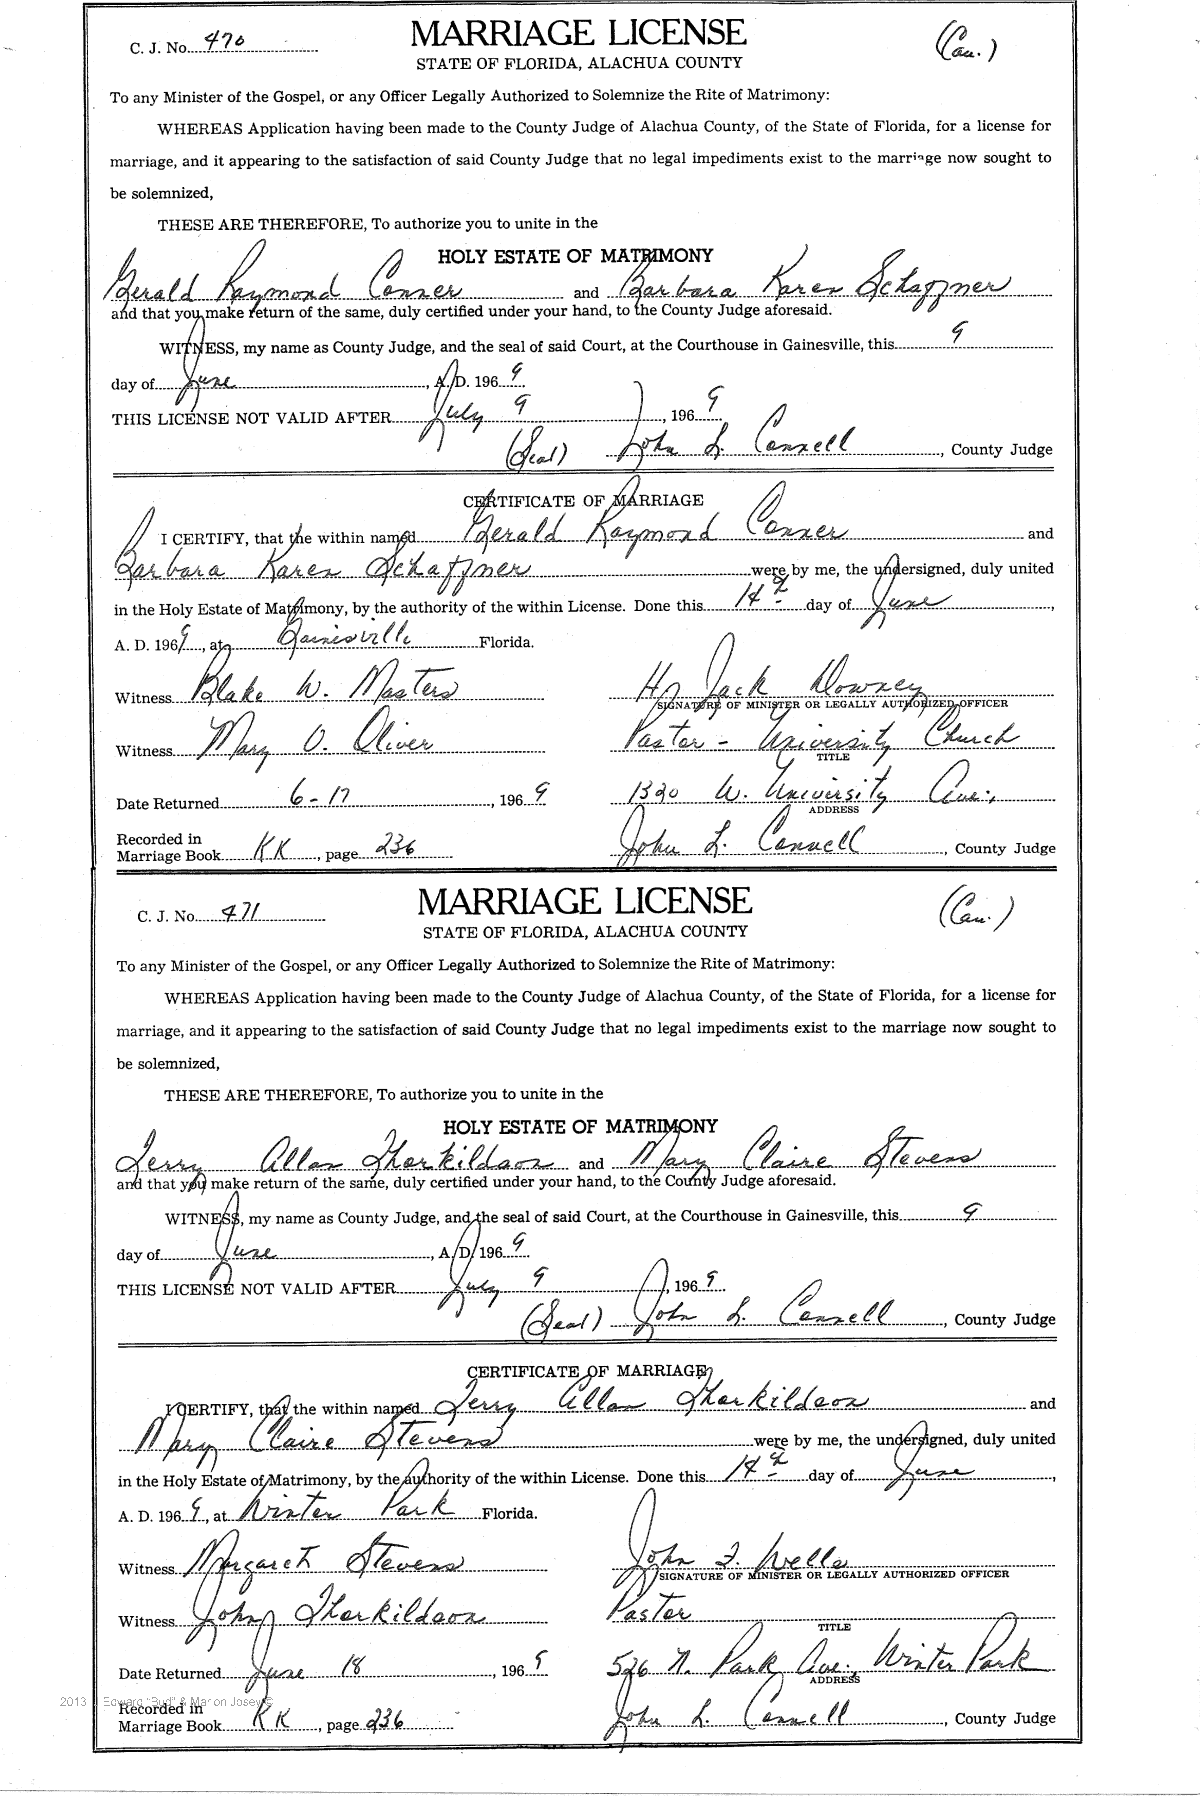 C. J. No. 470 MARRIAGE LICENSE (Cau.)
STATE OF FLORIDA, ALACHUA COUNTY
To any Minister of the Gospel, or any Officer Legally Authorized to Solemnize the Rite of Matrimony:
WHEREAS Application having been made to the County Judge of Alachua County, of the State of Florida, for a license for
marriage, and it appearing to the satisfaction of said County Judge that no legal impediments exist to the marriage now sought to
be solemnized,
THESE ARE THEREFORE, To authorize you to unite in the
HOLY ESTATE OF MATRIMONY
Gerald Raymond Conner and Barbara Karen Schaffner
and that you make return of the same, duly certified under your hand, to the County Judge aforesaid.
WITNESS, my name as County Judge, and the seal of said Court, at the Courthouse in Gainesville, this 9
day of June, A. D. 1969
THIS LICENSE NOT VALID AFTER July 9, 1969
(Seal) John L. Connell, County Judge
CERTIFICATE OF MARRIAGE
I CERTIFY, that the within named Gerald Raymond Conner and
Barbara Karen Schaffner were by me, the undersigned, duly united
in the Holy Estate of Matrimony, by the authority of the within License. Done this 14th day of June,
A. D. 1969, at Gainesville Florida.
Witness Blake W. Masters Jack Downey
SIGNATURE OF MINISTER OR LEGALLY AUTHORIZED OFFICER
Witness Mary O. Oliver Pastor - University Church
TITLE
Date Returned 6-17, 1969 1320 W. University Ave.,
ADDRESS
Recorded in
Marriage Book KK, page 236 John L. Connell, County Judge
C. J. No. 471 MARRIAGE LICENSE (Cau.)
STATE OF FLORIDA, ALACHUA COUNTY
To any Minister of the Gospel, or any Officer Legally Authorized to Solemnize the Rite of Matrimony:
WHEREAS Application having been made to the County Judge of Alachua County, of the State of Florida, for a license for
marriage, and it appearing to the satisfaction of said County Judge that no legal impediments exist to the marriage now sought to
be solemnized,
THESE ARE THEREFORE, To authorize you to unite in the
HOLY ESTATE OF MATRIMONY
Terry Allan Thorkildson and Mary Claire Stevens
and that you make return of the same, duly certified under your hand, to the County Judge aforesaid.
WITNESS, my name as County Judge, and the seal of said Court, at the Courthouse in Gainesville, this 9
day of June, A. D. 1969
THIS LICENSE NOT VALID AFTER July 9, 1969
(Seal) John L. Connell, County Judge
CERTIFICATE OF MARRIAGE
I CERTIFY, that the within named Terry Allan Thorkildson and
Mary Claire Stevens were by me, the undersigned, duly united
in the Holy Estate of Matrimony, by the authority of the within License. Done this 14th day of June,
A. D. 1969, at Winter Park Florida.
Witness Margaret Stevens John F. Wells
SIGNATURE OF MINISTER OR LEGALLY AUTHORIZED OFFICER
Witness John Thorkildson Pastor
TITLE
Date Returned June 18, 1969 526 N. Park Ave., Winter Park
ADDRESS
2013 Edward "Bud" & Marion Josey ©
Recorded in
Marriage Book KK, page 236 John L. Connell, County Judge